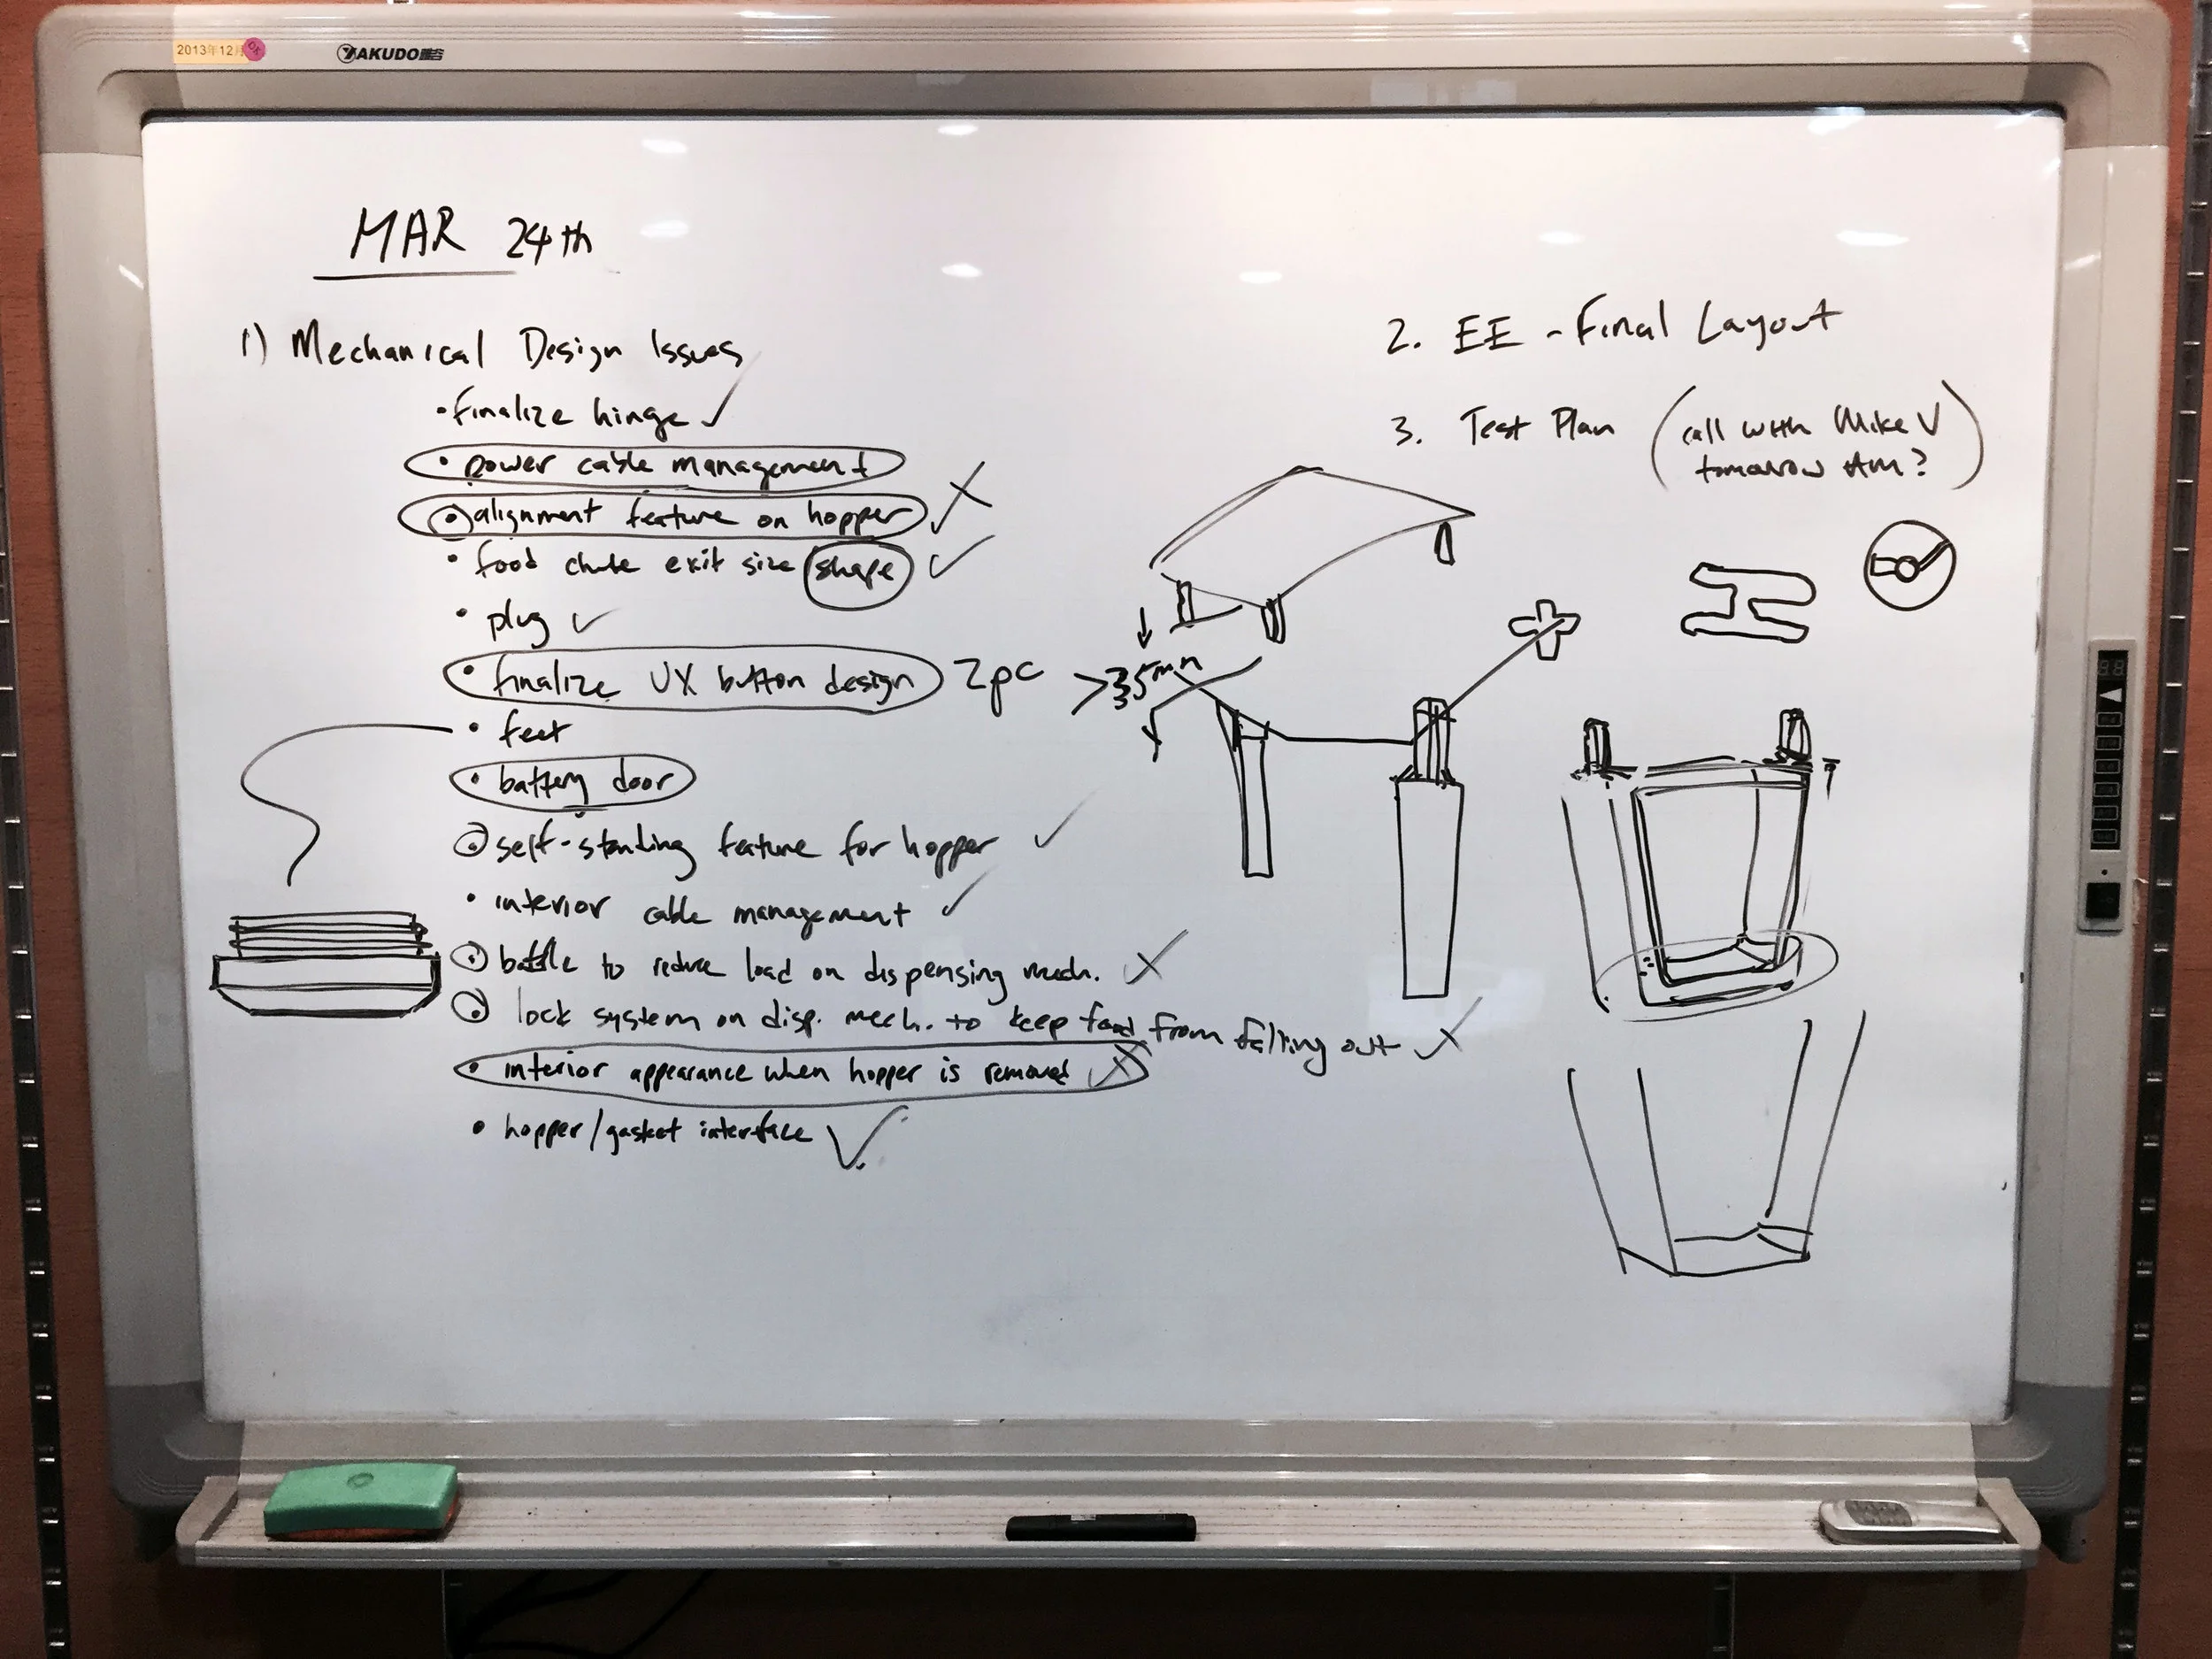 2013年12月 OK
YAKUDO雅谷
MAR 24th
1) Mechanical Design Issues
• finalize hinge ✓
• power cable management
• alignment feature on hopper
• food chute exit size shape ✓
• plug ✓
• finalize UX button design 2pc >35mm
• feet
• battery door
• self-standing feature for hopper ✓
• interior cable management ✓
• baffle to reduce load on dispensing mech.
• lock system on disp. mech. to keep food from falling out
• interior appearance when hopper is removed
• hopper/gasket interface ✓
2. EE - Final Layout
3. Test Plan (call with Mike V
tomorrow AM?)